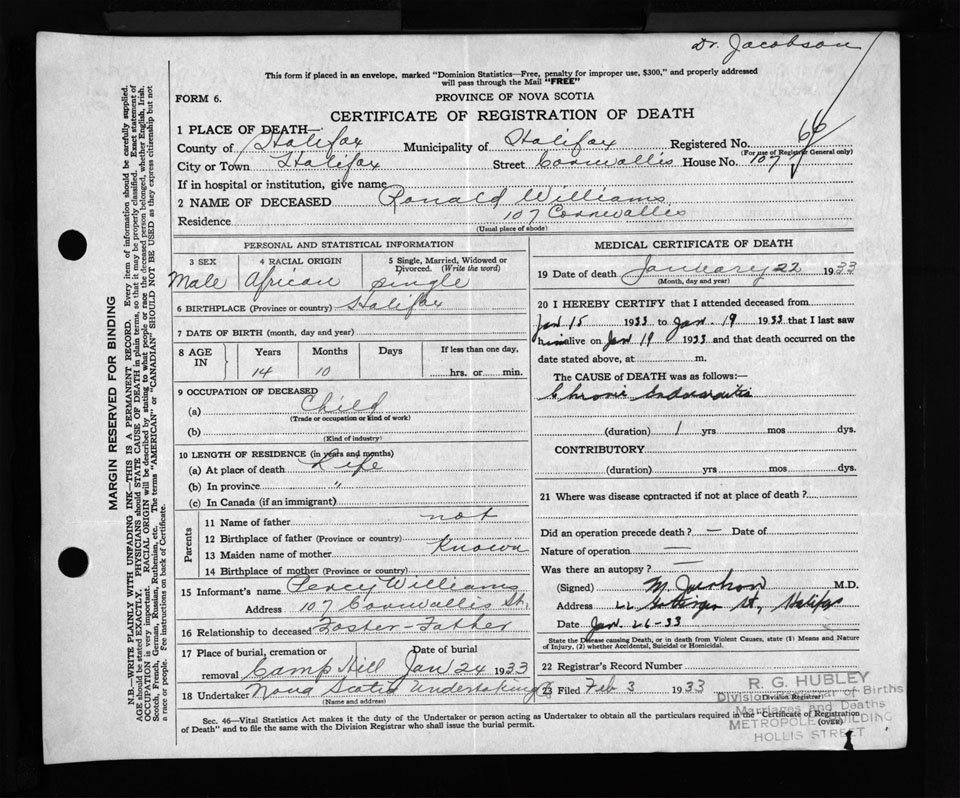 Dr. Jacobson
This form if placed in an envelope, marked "Dominion Statistics—Free, penalty for improper use, $300," and properly addressed
will pass through the Mail "FREE"
FORM 6.
PROVINCE OF NOVA SCOTIA
CERTIFICATE OF REGISTRATION OF DEATH
1 PLACE OF DEATH—
County of Halifax Municipality of Halifax Registered No. 66
(For use of Registrar General only)
City or Town Halifax Street Cornwallis House No. 107
If in hospital or institution, give name
2 NAME OF DECEASED Ronald Williams
Residence 107 Cornwallis
(Usual place of abode)
PERSONAL AND STATISTICAL INFORMATION
3 SEX 4 RACIAL ORIGIN 5 Single, Married, Widowed or
Divorced. (Write the word)
Male African Single
6 BIRTHPLACE (Province or country) Halifax
7 DATE OF BIRTH (month, day and year)
8 AGE IN Years Months Days If less than one day,
14 10 hrs. or min.
9 OCCUPATION OF DECEASED
(a) Child
(Trade or occupation or kind of work)
(b)
(Kind of industry)
10 LENGTH OF RESIDENCE (in years and months)
(a) At place of death Life
(b) In province "
(c) In Canada (if an immigrant)
Parents
11 Name of father not
12 Birthplace of father (Province or country)
13 Maiden name of mother Known
14 Birthplace of mother (Province or country)
15 Informant's name Percy Williams
Address 107 Cornwallis St.
16 Relationship to deceased Foster-Father
17 Place of burial, cremation or Date of burial
removal Camp Hill Jan 24 1933
18 Undertaker Nova Scotia Undertaking
(Name and address)
MEDICAL CERTIFICATE OF DEATH
19 Date of death January 22 1933
(Month, day and year)
20 I HEREBY CERTIFY that I attended deceased from
Jan 15 1933 to Jan. 19 1933 that I last saw
him alive on Jan 19 1933 and that death occurred on the
date stated above, at m.
The CAUSE of DEATH was as follows:—
Chronic Endocarditis
(duration) 1 yrs mos dys.
CONTRIBUTORY
(duration) yrs mos dys.
21 Where was disease contracted if not at place of death?
Did an operation precede death? — Date of
Nature of operation —
Was there an autopsy? —
(Signed) M. Jacobson M.D.
Address Gottingen St., Halifax
Date Jan. 26-33
State the Disease causing Death, or in death from Violent Causes, state (1) Means and Nature
of Injury, (2) whether Accidental, Suicidal or Homicidal.
22 Registrar's Record Number
23 Filed Feb 3 1933
Division Registrar
R. G. HUBLEY
Division Registrar of Births
Marriages and Deaths
METROPOLE BUILDING
HOLLIS STREET
Sec. 46—Vital Statistics Act makes it the duty of the Undertaker or person acting as Undertaker to obtain all the particulars required in the "Certificate of Registration
of Death" and to file the same with the Division Registrar who shall issue the burial permit.
(OVER)
MARGIN RESERVED FOR BINDING
N.B.—WRITE PLAINLY WITH UNFADING INK—THIS IS A PERMANENT RECORD. Every item of information should be carefully supplied.
AGE should be stated EXACTLY. PHYSICIANS should STATE CAUSE OF DEATH in plain terms, so that it may be properly classified. Exact statement of
OCCUPATION is very important. RACIAL ORIGIN will be described by stating to what people or race the deceased person belonged, whether English, Irish,
Scotch, French, German, Russian, Ruthenian, etc. The terms "AMERICAN" or "CANADIAN" SHOULD NOT BE USED as they express citizenship but not
a race or people. See instructions on back of Certificate.